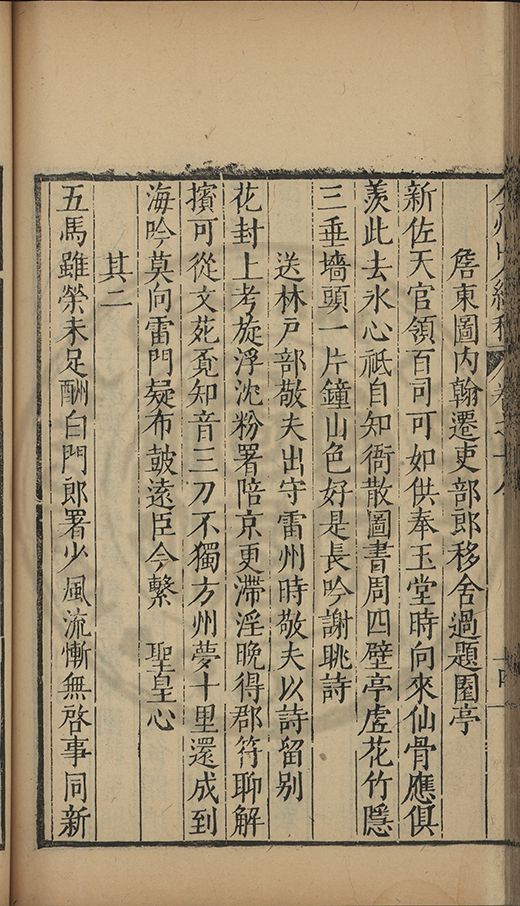 弇州山人續稿 卷之十八 十四
詹東圖內翰遷吏部郎移舍過題園亭
新佐天官領百司可如供奉玉堂時向來仙骨應俱
羨此去氷心祇自知衙散圖書周四壁亭虗花竹隱
三垂墻頭一片鐘山色好是長吟謝眺詩
送林戶部敬夫出守雷州時敬夫以詩留別
花封上考旋浮沈粉署陪京更滯淫晚得郡符聊解
擯可從文苑覔知音三刀不獨方州夢十里還成到
海吟莫向雷門疑布皷遠臣今繫 聖皇心
其二
五馬雖榮未足酬白門郎署少風流慚無啓事同新